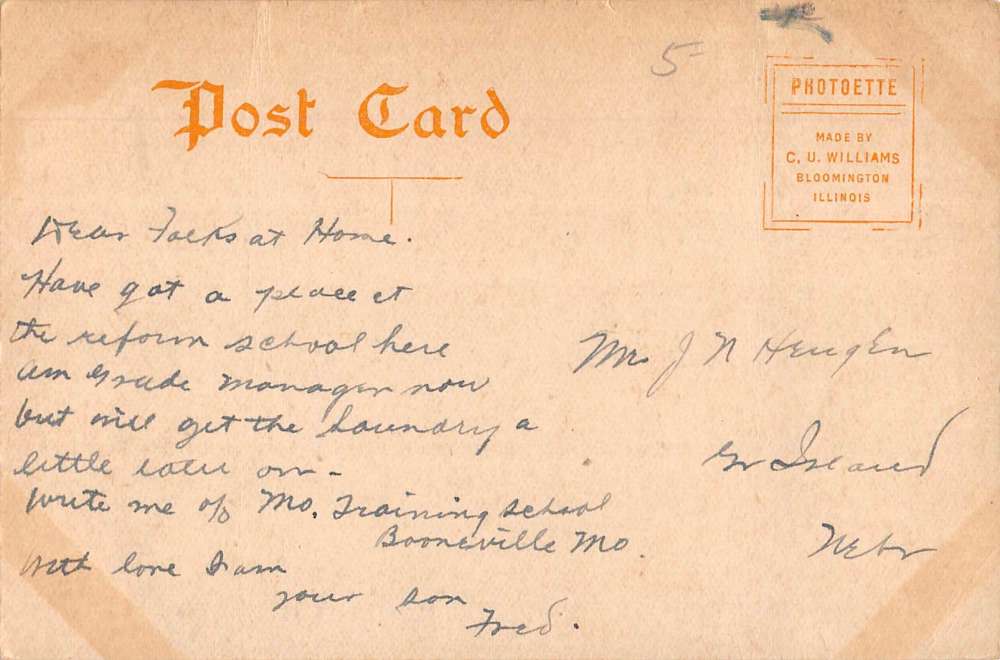 5
Post Card
PHOTOETTE
MADE BY
C. U. WILLIAMS
BLOOMINGTON
ILLINOIS
Dear Folks at Home.
Have got a place at
the reform school here
am grade manager now
but will get the laundry a
little later on -
Write me c/o Mo. Training School
Booneville Mo.
With love I am
your son
Fred.
J N Heugen
Gr Island
Nebr